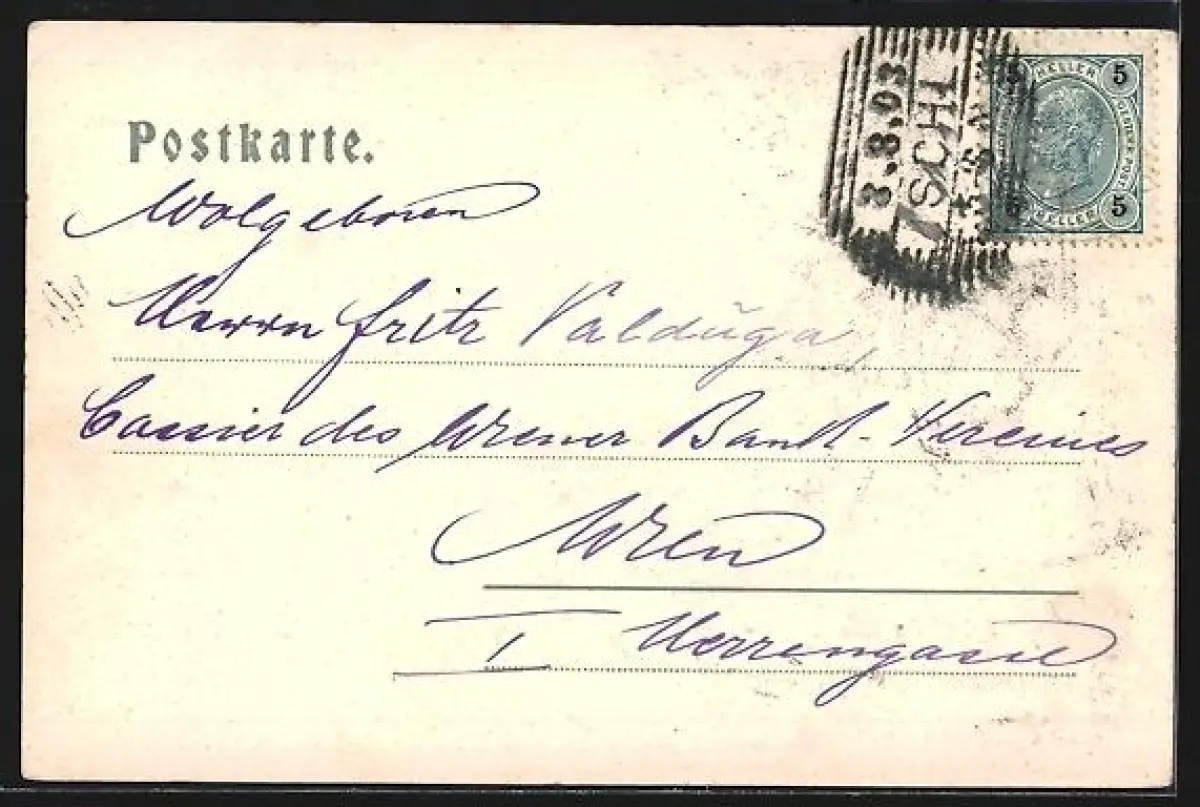 Postkarte.
3.8.03
ISCHL
5 HELLER 5
5 HELLER 5
Wolgeboren
Herrn Fritz Valdŭga
Cassier des Wiener Bank-Vereines
Wien
I Herrengasse